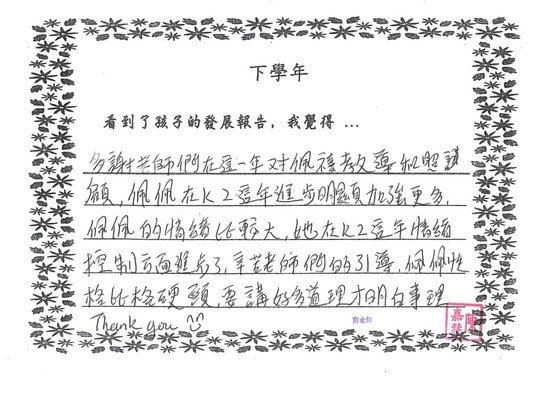 下學年
看到了孩子的發展報告，我覺得 ...
多謝老師們在這一年對佩禧教導和照
顧，佩佩在K2這年進步明顯加強更多，
佩佩的情緒比較大，她在K2這年情緒
控制方面進步了，辛苦老師們的引導，佩佩性
格比格硬頸，要講好多道理才明白事理
Thank you